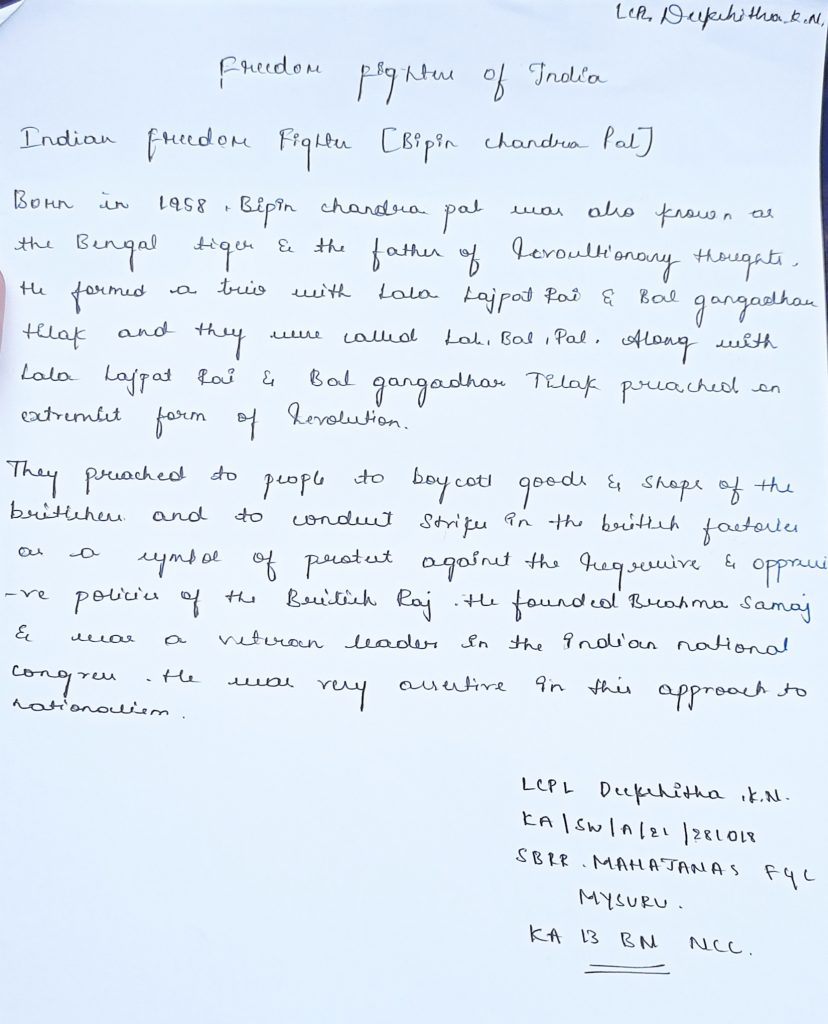 LCPL Deekshitha K.N.
Freedom Fighter of India
Indian freedom Fighter [Bipin chandra Pal]
Born in 1958, Bipin chandra pal was also known as
the Bengal tiger & the father of Revoultionary thoughts.
He formed a trio with Lala Lajpat Rai & Bal gangadhar
tilak and they were called Lal, Bal, Pal. Along with
Lala Lajpat Rai & Bal gangadhar Tilak preached an
extremist form of Revolution.
They preached to people to boycott goods & shops of the
britishers and to conduct strikes in the british factories
as a symbol of protest against the & oppressi
-ve policies of the British Raj. He founded Brahma Samaj
& was a veteran leader in the Indian national
congress. He was very assertive in this approach to
nationalism.
LCPL Deekshitha .K.N.
KA/SW/A/21/281018
SBRR. MAHAJANAS FGC
MYSURU.
KA 13 BN NCC.